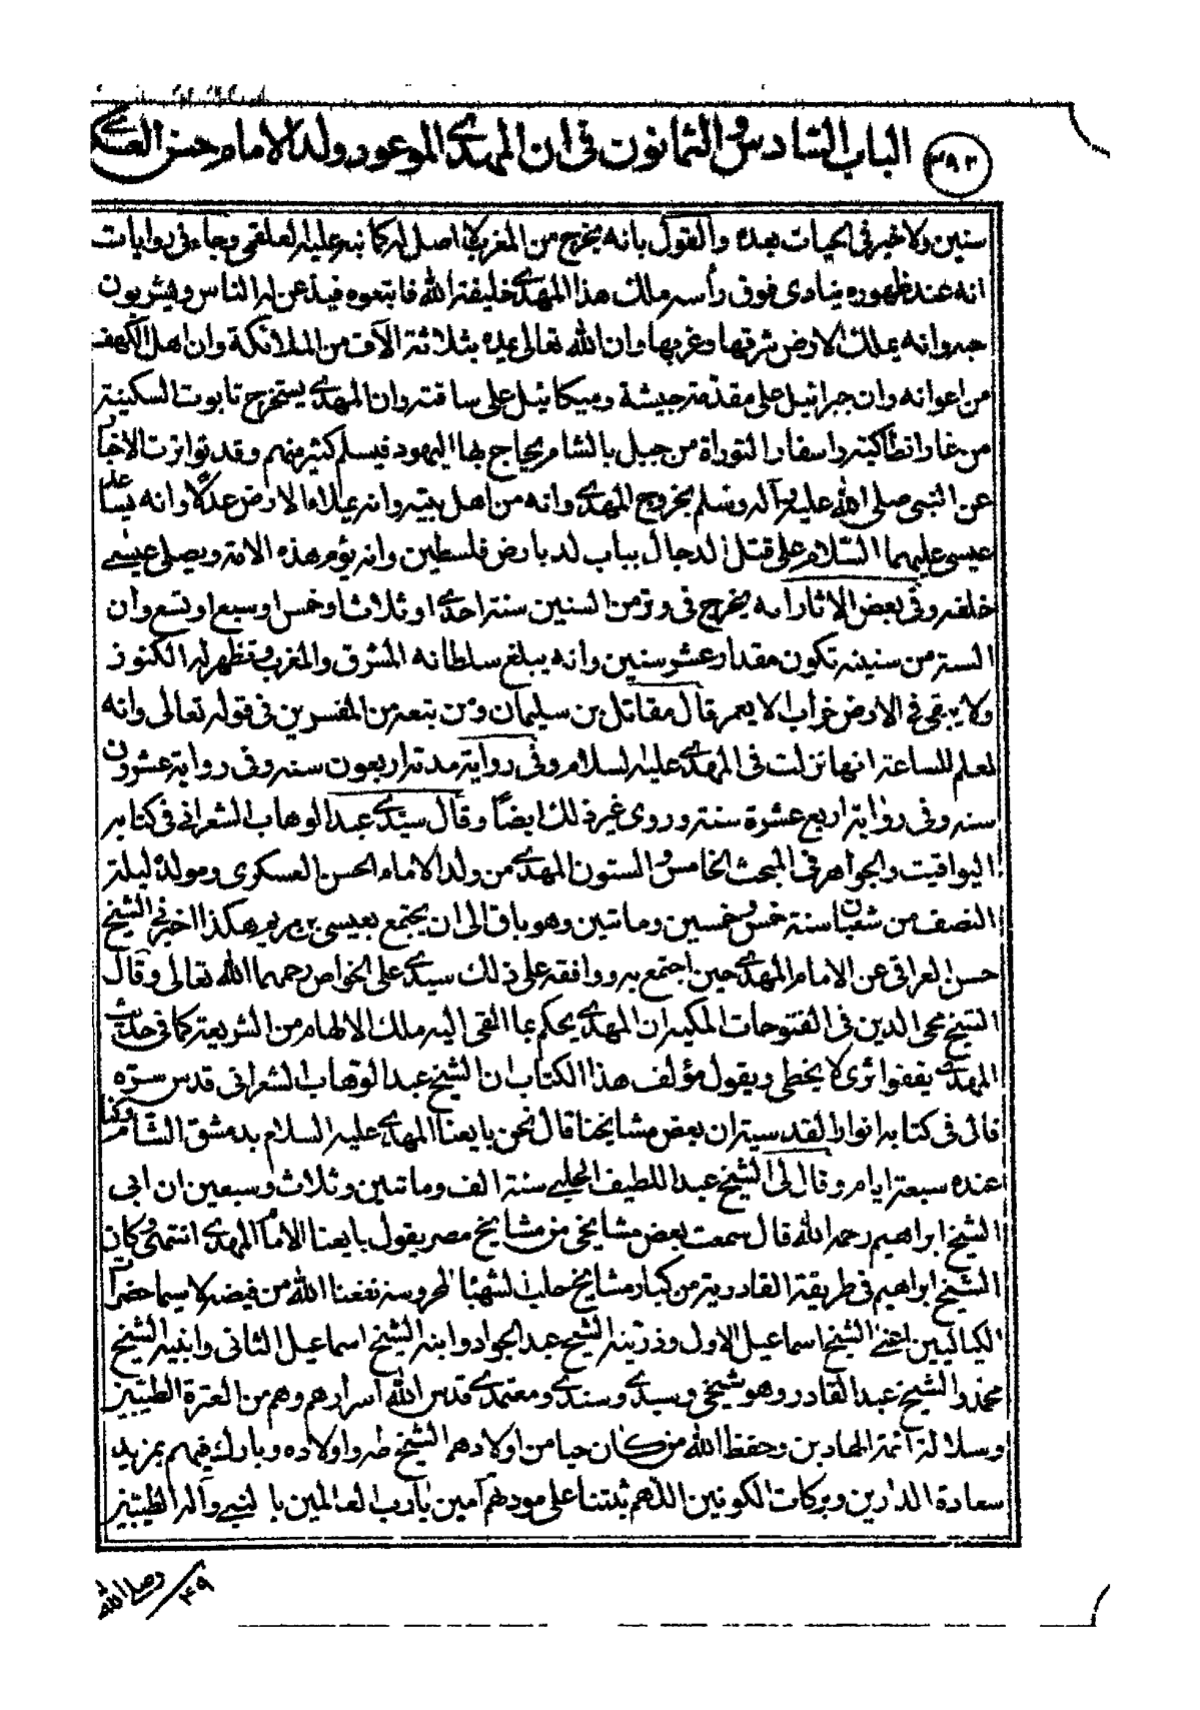 ٣٩٢ الباب السادس والثمانون في ان المهدي الموعود ولد الامام حسن العسكري
سنين ولا خير في الحيات بعده والقول بانه يخرج من المغرب لا اصل له كما نبه عليه العلقمي وجاء في روايات
انه عند ظهوره ينادى فوق رأسه ملك هذا المهدي خليفة الله فاتبعوه فيذعن له الناس ويشربون
حبه وانه يملك الارض شرقها وغربها وان الله تعالى يمده بثلاثة الآف من الملائكة وان اهل الكهف
من اعوانه وان جبرائيل على مقدمة جيشه وميكائيل على ساقته وان المهدي يستخرج تابوت السكينة
من غار انطاكية واسفار التوراة من جبل بالشام يحاج بها اليهود فيسلم كثير منهم وقد تواترت الاخبار
عن النبى صلى الله عليه وآله وسلم بخروج المهدي وانه من اهل بيته وانه يملاء الارض عدلا وانه يساعد
عيسى عليهما السلام على قتل الدجال بباب لد بارض فلسطين وانه يؤم هذه الامة ويصلى عيسى
خلفه وفي بعض الاثار انه يخرج فى وتر من السنين سنة احدى او ثلاث او خمس او سبع او تسع وان
السنة من سنينه تكون مقدار عشر سنين وانه يبلغ سلطانه المشرق والمغرب وتظهر له الكنوز
ولا يبقى في الارض خراب الا يعمر قال مقاتل بن سليمان ومن تبعه من المفسرين فى قوله تعالى وانه
لعلم للساعة انها نزلت فى المهدي عليه السلام وفى رواية مدته اربعون سنه وفى رواية عشرون
سنه وفى رواية اربع عشرة سنة وروى غير ذلك ايضا وقال سيدي عبد الوهاب الشعرانى فى كتابه
اليواقيت والجواهر فى المبحث الخامس والستون المهدي من ولد الامام الحسن العسكرى ومولده ليلة
النصف من شعبان سنة خمس وخمسين وماتين وهو باق الى ان يجتمع بعيسى بن مريم هكذا اخبرني الشيخ
حسن العراقى عن الامام المهدي حين اجتمع به ووافقه على ذلك سيدي على الخواص رحمهما الله تعالى وقال
الشيخ محى الدين فى الفتوحات المكية ان المهدي يحكم بما القى اليه ملك الالهام من الشريعة كما فى حديث
المهدي يقفوا ثرى لا يخطى ويقول مؤلف هذا الكتاب ان الشيخ عبد الوهاب الشعرانى قدس سره
قال فى كتابه انوار القدسية ان بعض مشايخنا قال نحن بايعنا المهدي عليه السلام بدمشق الشام وكنا
عنده سبعة ايام وقال لى الشيخ عبد اللطيف الحلبى سنة الف وماتين وثلاث وسبعين ان ابى
الشيخ ابراهيم رحمه الله قال سمعت بعض مشايخى من مشايخ مصر يقول بايعنا الامام المهدي انتهى وكان
الشيخ ابراهيم فى طريقة القادرية من كبار مشايخ حلب الشهبا المحروسه نفعنا الله من فيضه لا سيما حضرات
الكياليين اعنى الشيخ اسماعيل الاول وذريته الشيخ عبد الجواد وابنه الشيخ اسماعيل الثانى وابنيه الشيخ
محمد والشيخ عبد القادر وهو شيخى وسيدي وسندي ومعتمدي قدس الله اسرارهم وهم من العترة الطيبين
وسلالة ائمة الهادين وحفظ الله من كان حيا من اولادهم الشيخ طه واولاده وبارك فيهم بمزيد
سعادة الدارين وبركات الكونين اللهم ثبتنا على مودتهم آمين يا رب العالمين بالنبى وآله الطيبين
وصلى الله